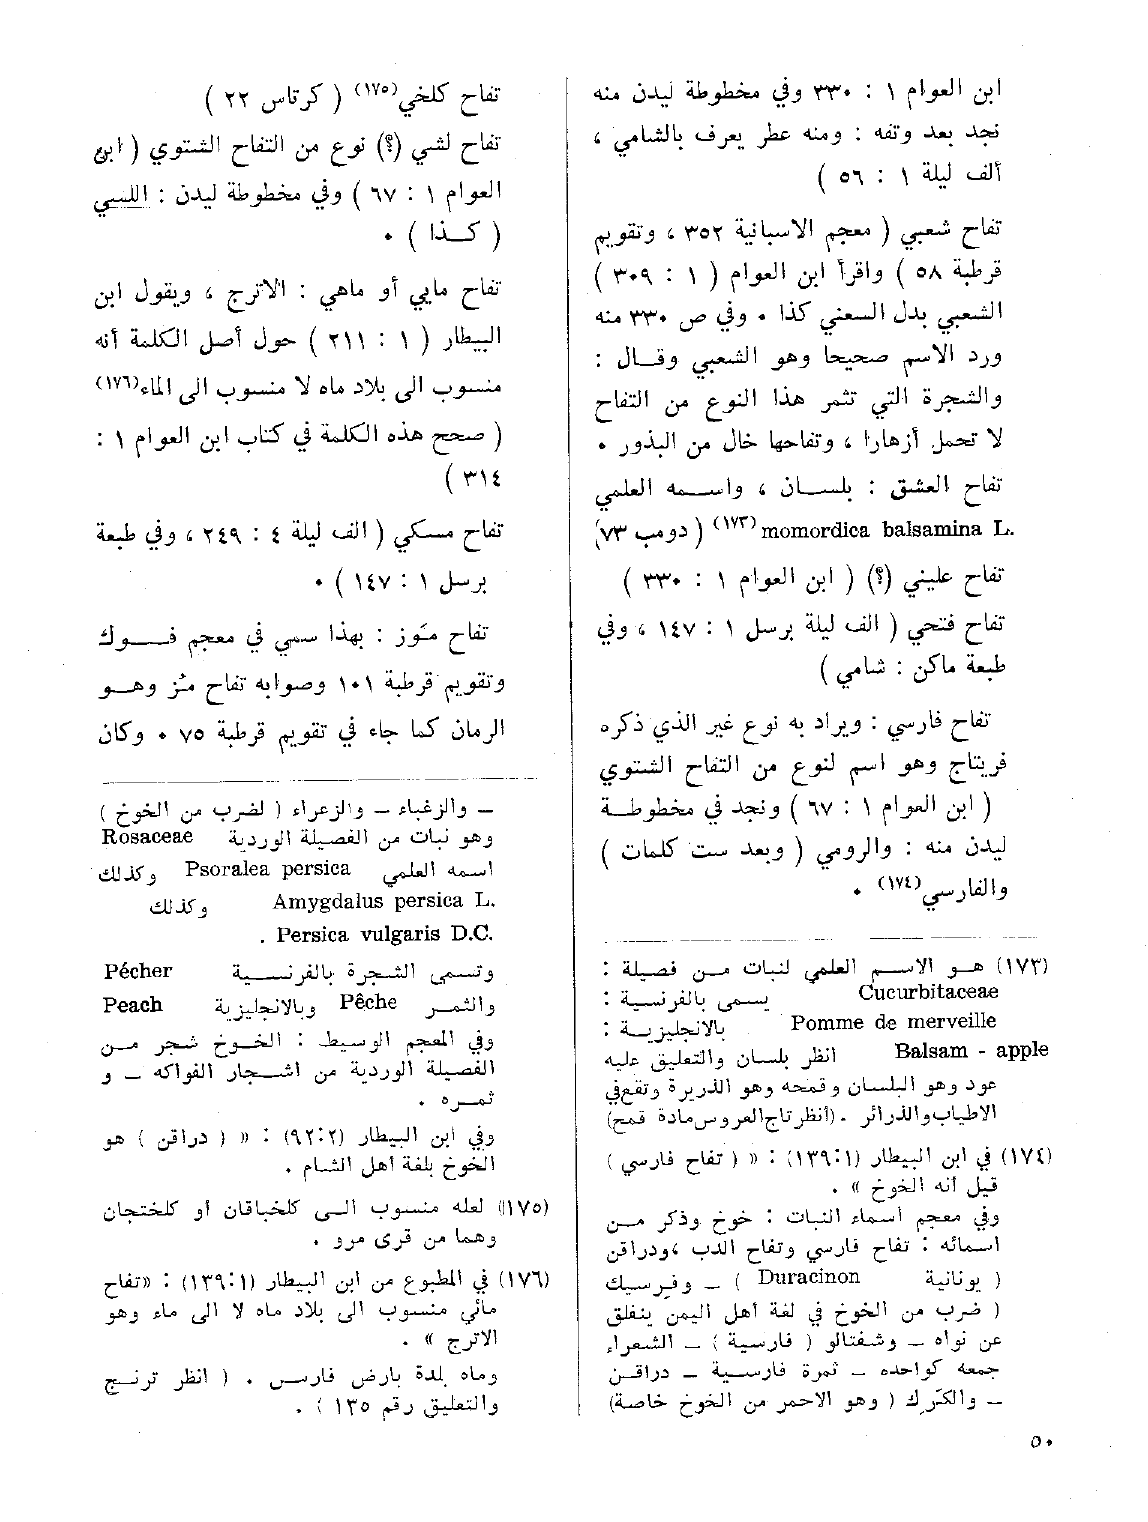 ابن العوام ١ : ٣٣٠ وفي مخطوطة ليدن منه
نجد بعد وتفه : ومنه عطر يعرف بالشامي ،
ألف ليلة ١ : ٥٦ )
تفاح شعبي ( معجم الاسبانية ٣٥٢ ، وتقويم
قرطبة ٥٨ ) واقرأ ابن العوام ( ١ : ٣٠٩ )
الشعبي بدل السعني كذا . وفي ص ٣٣٠ منه
ورد الاسم صحيحا وهو الشعبي وقال :
والشجرة التي تثمر هذا النوع من التفاح
لا تحمل أزهارا ، وتفاحها خال من البذور .
تفاح العشق : بلسان ، واسمه العلمي
momordica balsamina L. (١٧٣) ( دومب ٧٣)
تفاح عليني (؟) ( ابن العوام ١ : ٣٣٠ )
تفاح فتحي ( الف ليلة برسل ١ : ١٤٧ ، وفي
طبعة ماكن : شامي )
تفاح فارسي : ويراد به نوع غير الذي ذكره
فريتاج وهو اسم لنوع من التفاح الشتوي
( ابن العوام ١ : ٦٧ ) ونجد في مخطوطة
ليدن منه : والرومي ( وبعد ست كلمات )
والفارسي(١٧٤) .
(١٧٣) هو الاسم العلمي لنبات من فصيلة :
Cucurbitaceae يسمى بالفرنسية :
Pomme de merveille بالانجليزية :
Balsam - apple انظر بلسان والتعليق عليه
عود وهو البلسان وقمحه وهو الذريرة وتقع في
الاطياب والذرائر . (انظر تاج العروس مادة قمح)
(١٧٤) في ابن البيطار (١:١٣٩) : « ( تفاح فارسي )
قيل أنه الخوخ » .
وفي معجم أسماء النبات : خوخ وذكر من
اسمائه : تفاح فارسي وتفاح الدب ، ودراقن
( يونانية Duracinon ) ـ وفرسيك
( ضرب من الخوخ في لغة أهل اليمن ينفلق
عن نواه ـ وشفتالو ( فارسية ) ـ الشعراء
جمعه كواحده ـ ثمرة فارسية ـ دراقن
ـ والكَرِك ( وهو الاحمر من الخوخ خاصة)
تفاح كلخي(١٧٥) ( كرتاس ٢٢ )
تفاح لشي (؟) نوع من التفاح الشتوي ( ابن
العوام ١ : ٦٧ ) وفي مخطوطة ليدن : اللبي
( كذا ) .
تفاح مايي أو ماهي : الاترج ، ويقول ابن
البيطار ( ١ : ٢١١ ) حول أصل الكلمة أنه
منسوب الى بلاد ماه لا منسوب الى الماء(١٧٦)
( صحح هذه الكلمة في كتاب ابن العوام ١ :
٣١٤ )
تفاح مسكي ( الف ليلة ٤ : ٢٤٩ ، وفي طبعة
برسل ١ : ١٤٧ ) .
تفاح مَوز : بهذا سمي في معجم فوك
وتقويم قرطبة ١٠١ وصوابه تفاح مُز وهو
الرمان كما جاء في تقويم قرطبة ٧٥ . وكان
ـ والزغباء ـ والزعراء ( لضرب من الخوخ )
وهو نبات من الفصيلة الوردية Rosaceae
اسمه العلمي Psoralea persica وكذلك
Amygdalus persica L. وكذلك
Persica vulgaris D.C. .
وتسمى الشجرة بالفرنسية Pécher
والثمر Pêche وبالانجليزية Peach
وفي المعجم الوسيط : الخوخ شجر من
الفصيلة الوردية من اشجار الفواكه ـ و
ثمره .
وفي ابن البيطار (٢:٩٢) : « ( دراقن ) هو
الخوخ بلغة أهل الشام .
(١٧٥) لعله منسوب الى كلخباقان أو كلختجان
وهما من قرى مرو .
(١٧٦) في المطبوع من ابن البيطار (١:١٣٩) : «تفاح
مائي منسوب الى بلاد ماه لا الى ماء وهو
الاترج » .
وماه بلدة بارض فارس . ( انظر ترنج
والتعليق رقم ١٣٥ ) .
٥٠